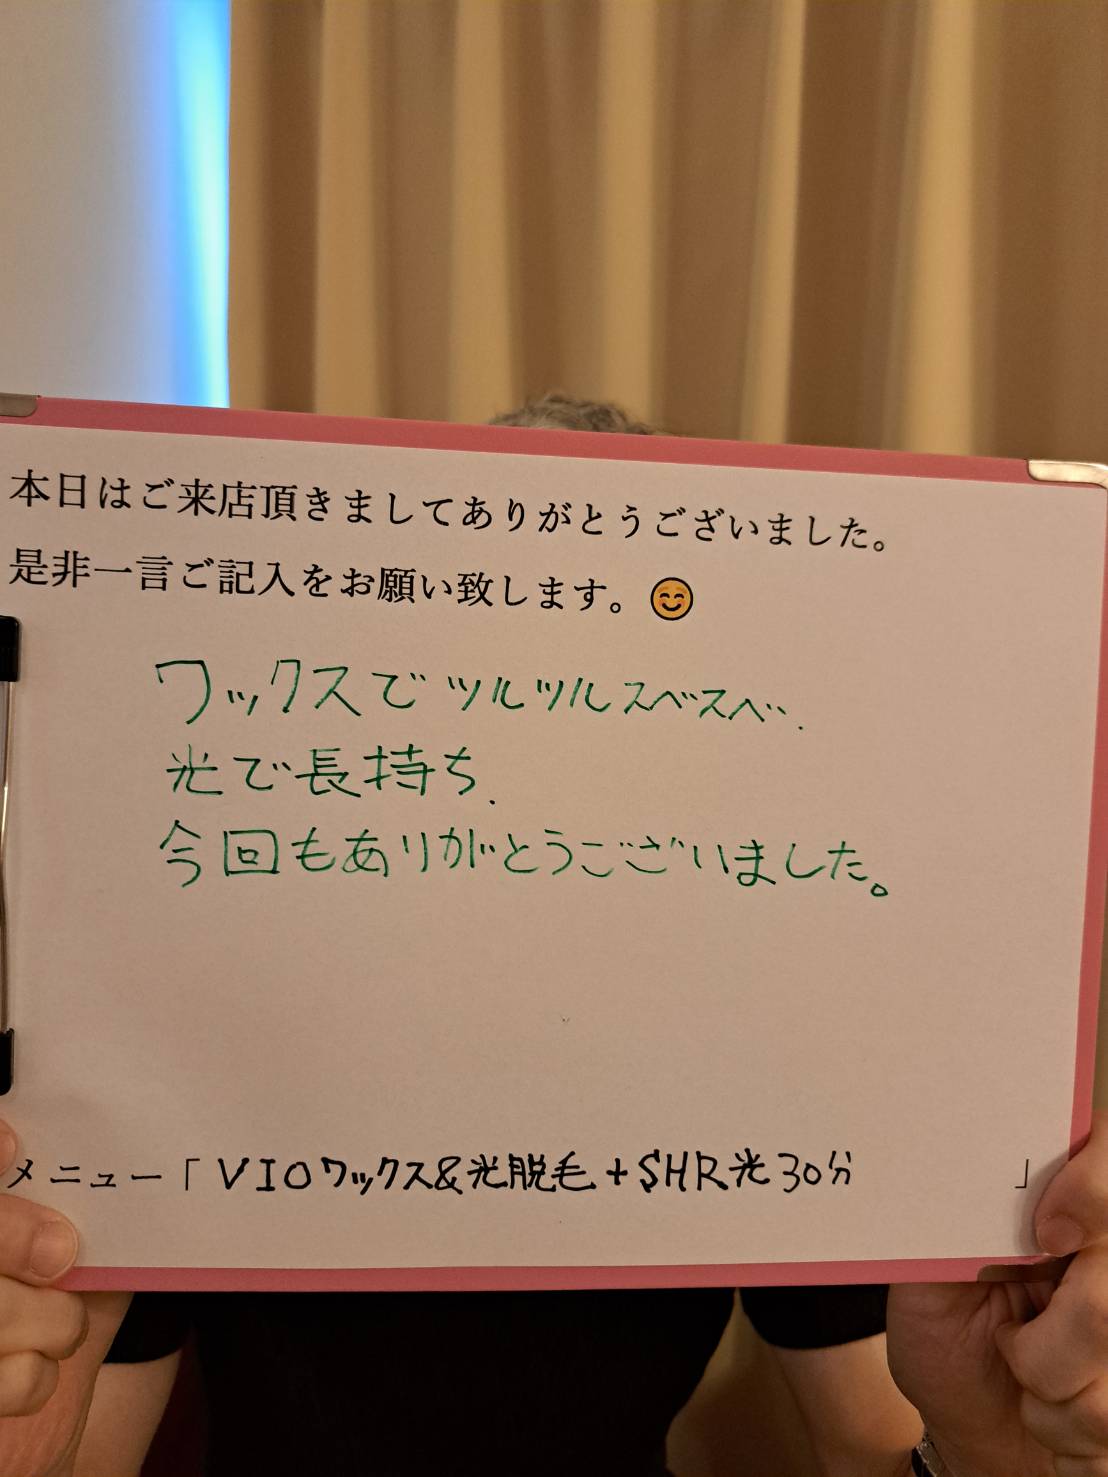 本日はご来店頂きましてありがとうございました。
是非一言ご記入をお願い致します。😊
ワックスでツルツルスベスベ.
光で長持ち.
今回もありがとうございました。
メニュー「VIOワックス&光脱毛+SHR光30分」